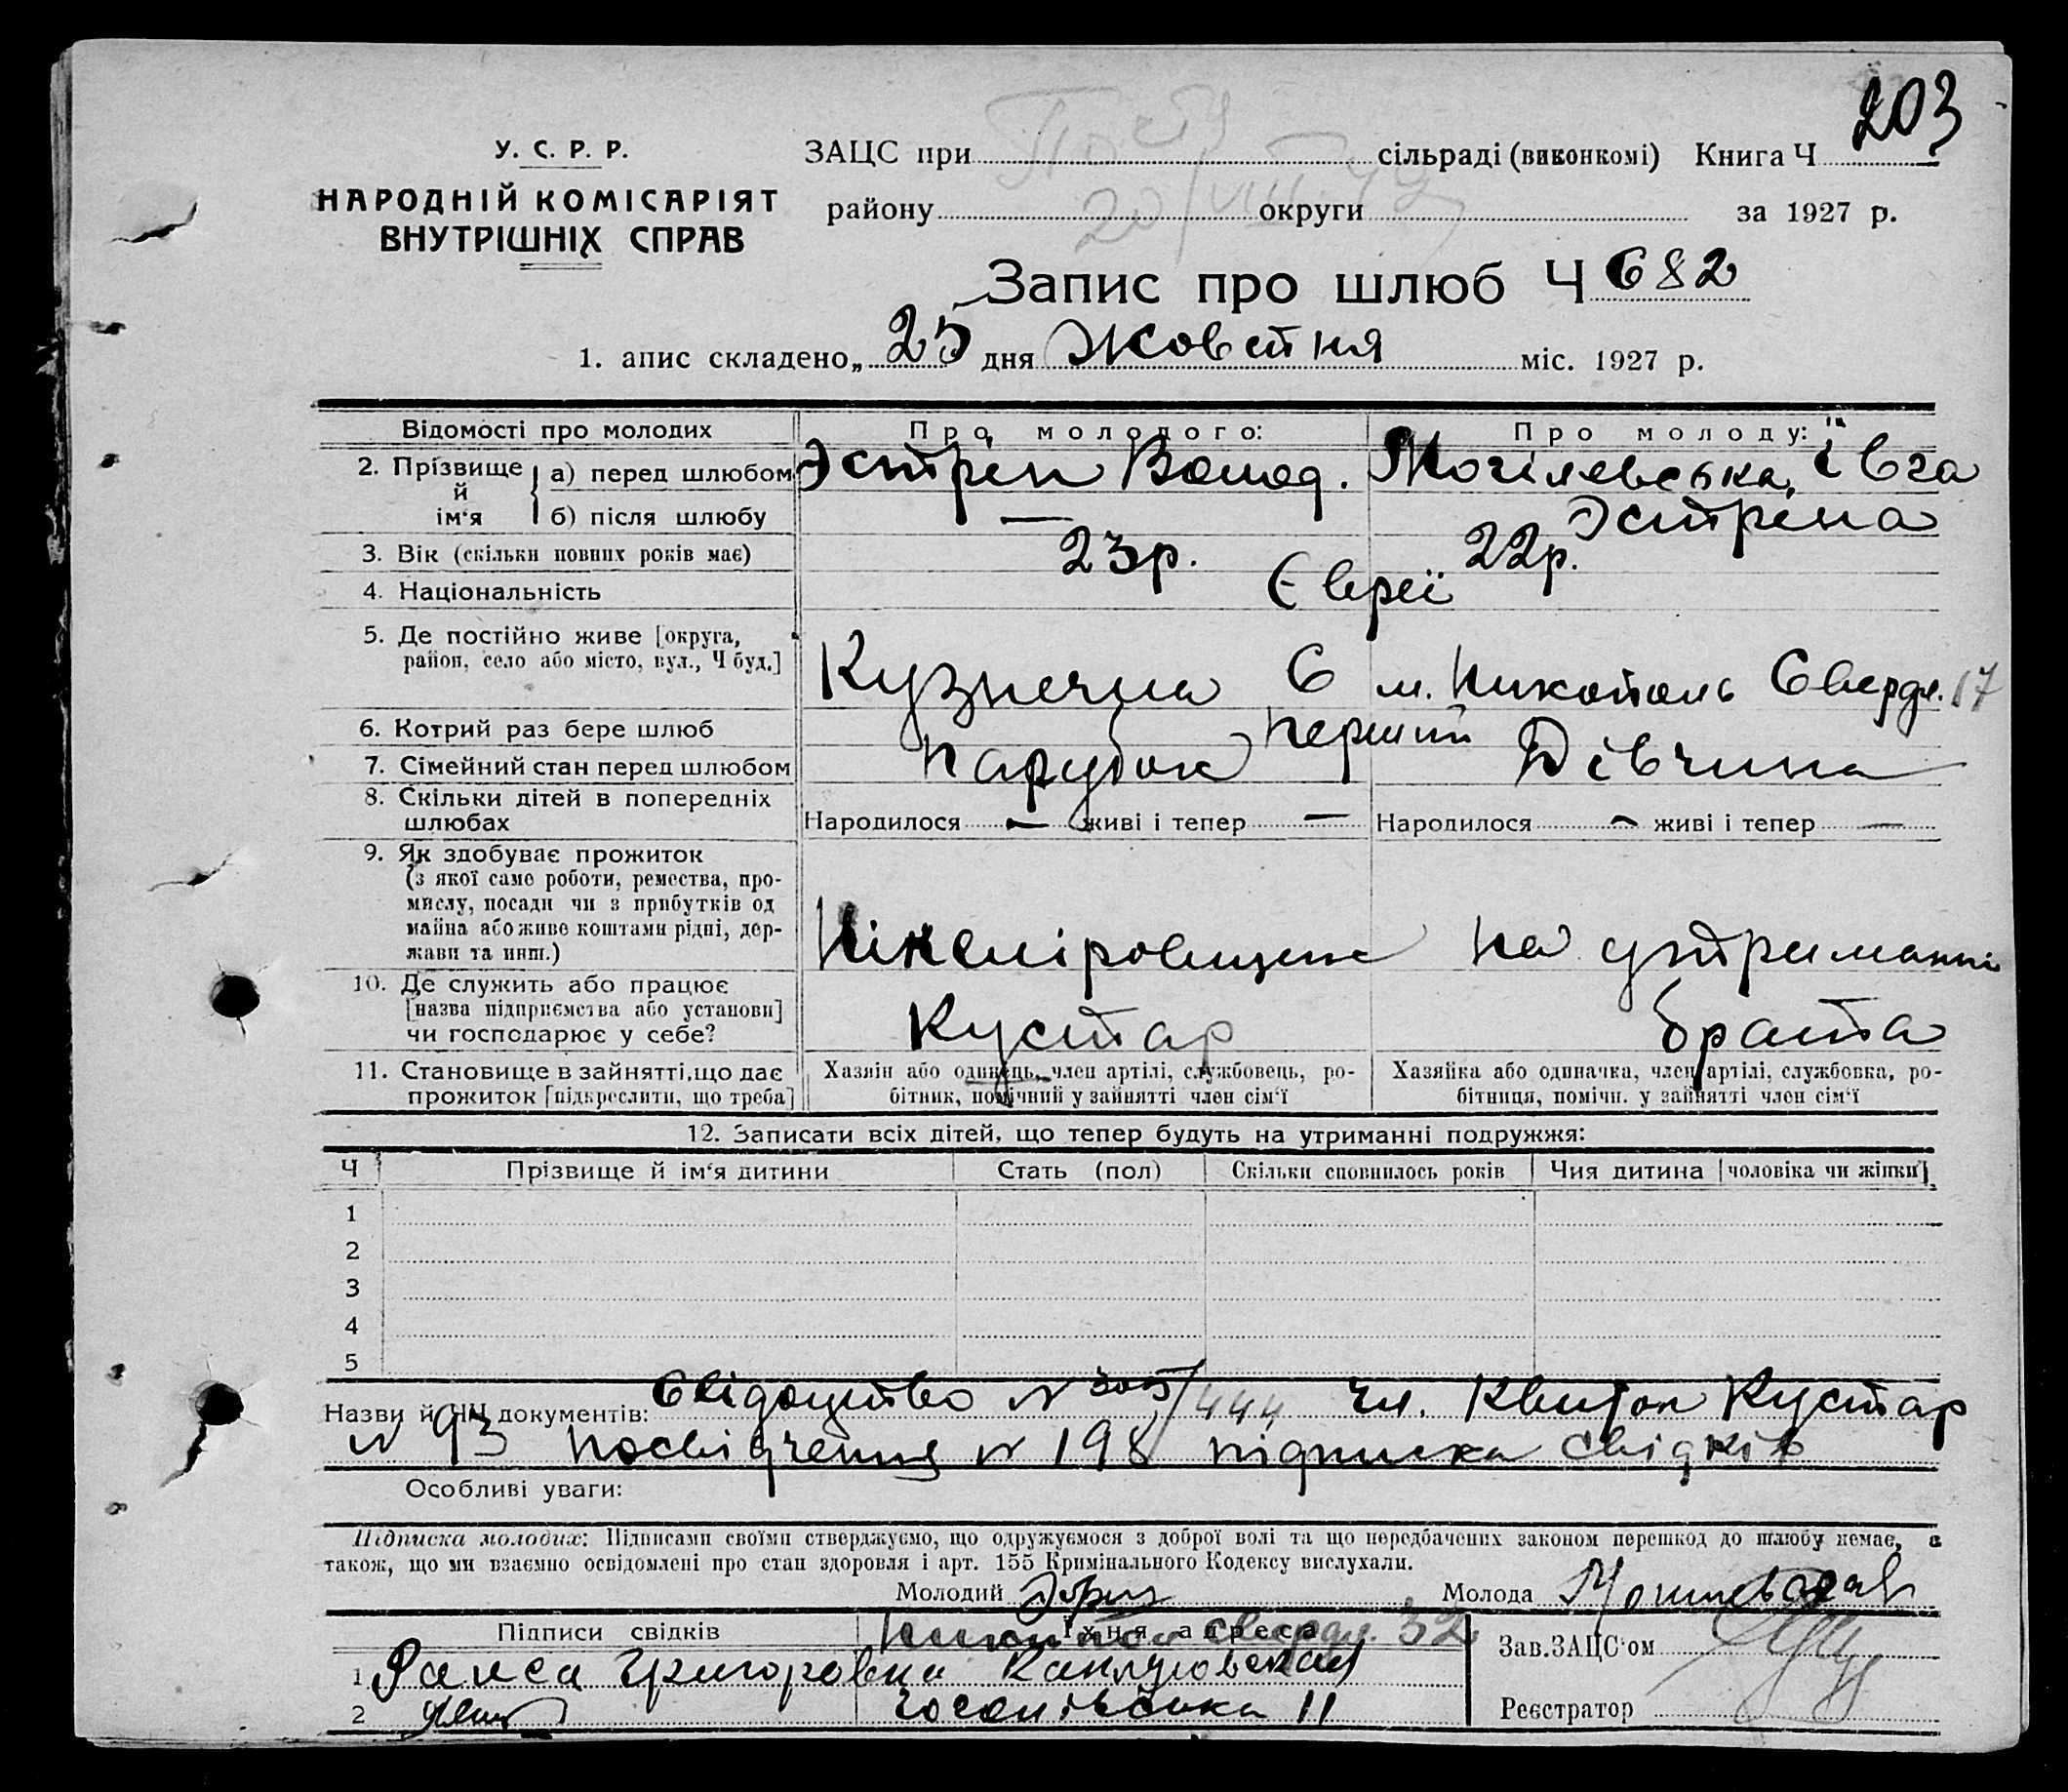 203
У. С. Р. Р.
НАРОДНІЙ КОМІСАРІЯТ
ВНУТРІШНІХ СПРАВ
ЗАЦС при сільраді (виконкомі) Книга Ч
району округи за 1927 р.
20/VIII
Запис про шлюб Ч 682
1. апис складено „ 25 дня Жовтня міс. 1927 р.
Відомості про молодих Про молодого: Про молоду:
2. Прізвище й ім‘я а) перед шлюбом Эстрін Волод. Могілевська, Івга
б) після шлюбу — Эстріна
3. Вік (скільки повних років має) 23р. 22р.
4. Національність Євреї
5. Де постійно живе [округа, район, село або місто, вул., Ч буд.] Кузнечна 6 м. Никополь Свердл. 17
6. Котрий раз бере шлюб перший
7. Сімейний стан перед шлюбом Парубок Дівчина
8. Скільки дітей в попередніх шлюбах Народилося — живі і тепер — Народилося — живі і тепер —
9. Як здобуває прожиток (з якої саме роботи, ремества, промислу, посади чи з прибутків од майна або живе коштами рідні, держави та инш.) Нікеліровщик На утриманні
10. Де служить або працює [назва підприємства або установи] чи господарює у себе? Кустар брата
11. Становище в зайнятті, що дає прожиток [підкреслити, що треба] Хазяін або одинець, член артілі, службовець, робітник, помічний у зайнятті член сім‘ї Хазяйка або одиначка, член артілі, службовка, робітниця, помічн. у зайнятті член сім‘ї
12. Записати всіх дітей, що тепер будуть на утриманні подружжя:
Ч Прізвище й ім‘я дитини Стать (пол) Скільки сповнилось років Чия дитина [чоловіка чи жінки]
1
2
3
4
5
Назви й ЧЧ документів: Свідоцтво N 305/444 чл. Квиток Кустар
N 93 посвідчення N 198 підписка свідків
Особливі уваги:
Підписка молодих: Підписами своїми стверджуємо, що одружуємося з доброї волі та що передбачених законом перешкод до шлюбу немає, а
також, що ми взаємно освідомлені про стан здоровля і арт. 155 Кримінального Кодексу вислухали.
Молодий Молода
Підписи свідків Їхня адреса Свердл. 32 Зав. ЗАЦС‘ом
1 Раиса Григоровна
2 11 Реєстратор